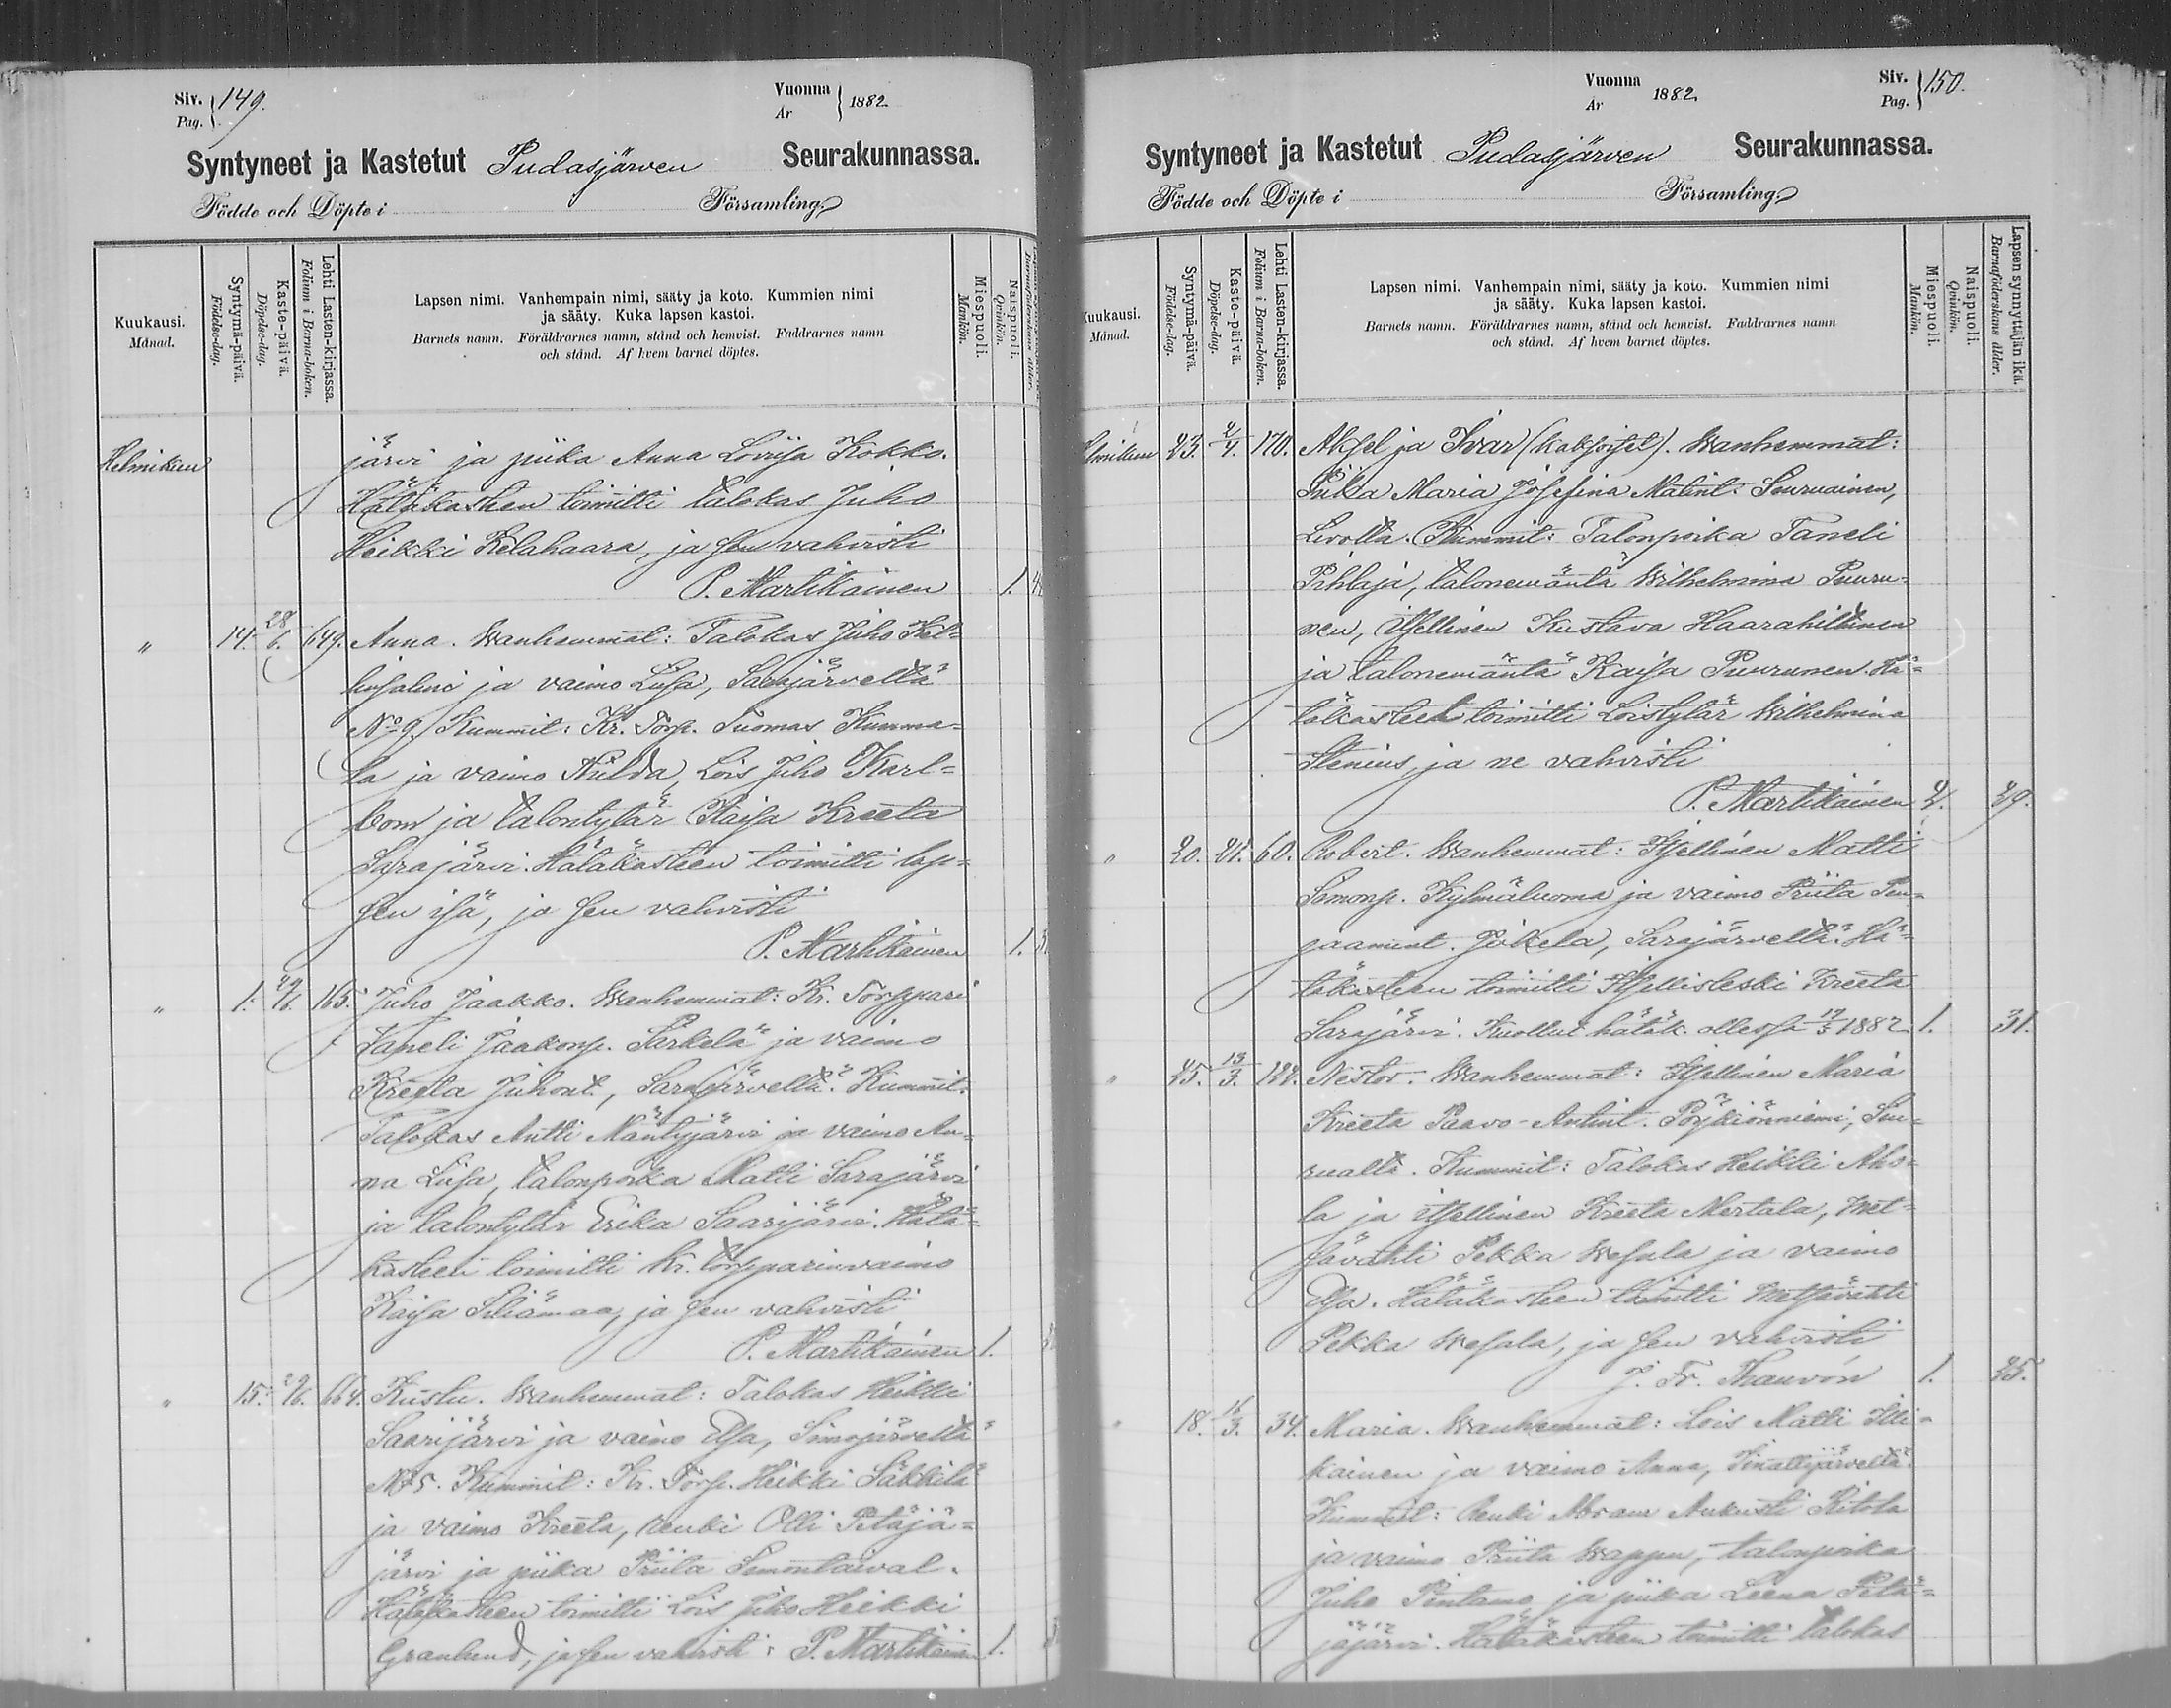 Siv. Pag. 149.
Vuonna År 1882.
Syntyneet ja Kastetut Pudasjärven Seurakunnassa.
Födde och Döpte i Församling
Kuukausi. Månad.
Syntymä-päivä. Födelse-dag.
Kaste-päivä. Döpelse-dag.
Lehti Lasten-kirjassa. Folium i Barna-boken.
Lapsen nimi. Vanhempain nimi, sääty ja koto. Kummien nimi
ja sääty. Kuka lapsen kastoi.
Barnets namn. Föräldrarnes namn, stånd och hemvist. Faddrarnes namn
och stånd. Af hvem barnet döptes.
Miespuoli. Mankön.
Naispuoli. Qvinkön.
Helmikuu järvi ja piika Anna Lovisa Kokko.
Hätäkasteen toimitti talokas Juho
Heikki Kelahaara, ja sen vahvisti
P. Martikainen 1.
" 14. 28/6. 649. Anna. Wanhemmat: Talokas Juho
ja vaimo Liisa, Sarajärveltä
No 9. Kummit: Kr. Torp. Tuomas Kumma-
la ja vaimo Hilda, Lois Juho Karl-
bom ja talontytär Kaisa Kreeta
Sarajärvi. Hätäkasteen toimitti lap-
sen isä, ja sen vahvisti
P. Martikainen 1.
" 1. 165. Juho Jaakko. Wanhemmat: Kr. Torppari
Taneli Jaakonp. Särkelä ja vaimo
Kreeta Juhont., Sarajärveltä. Kummit:
Talokas Antti Mäntyjärvi ja vaimo An-
na Liisa, talonpoika Matti Sarajärvi
ja talontytär Erika Saarijärvi. Hätä-
kasteen toimitti kr. torpparinvaimo
Kaisa Siliämaa, ja sen vahvisti
P. Martikainen 1.
" 15. 664. Kustu. Wanhemmat: Talokas Heikki
Saarijärvi ja vaimo Elsa, Simojärveltä
No 5. Kummit: Kr. Torp. Heikki Säkkilä
ja vaimo Kreeta, renki Olli Petäjä-
järvi ja piika Priita Simontaival.
Hätäkasteen toimitti Lois Juho Heikki
Granlund, ja sen vahvisti: P. Martikainen 1.
Vuonna År 1882.
Siv. Pag. 150.
Syntyneet ja Kastetut Pudasjärven Seurakunnassa.
Födde och Döpte i Församling
Kuukausi. Månad.
Syntymä-päivä. Födelse-dag.
Kaste-päivä. Döpelse-dag.
Lehti Lasten-kirjassa. Folium i Barna-boken.
Lapsen nimi. Vanhempain nimi, sääty ja koto. Kummien nimi
ja sääty. Kuka lapsen kastoi.
Barnets namn. Föräldrarnes namn, stånd och hemvist. Faddrarnes namn
och stånd. Af hvem barnet döptes.
Miespuoli. Mankön.
Naispuoli. Qvinkön.
Lapsen synnyttäjän ikä. Barnaföderskans ålder.
Helmikuu 23. 2/4. 170. Aksel ja Ivar (kaksoiset). Wanhemmat:
Piika Maria Josefina Matint. Sourvainen,
Livolta. Kummit: Talonpoika Taneli
Pihlaja, talonemäntä Wilhelmina Puuru-
nen, itsellinen Kustava Haarahiltunen
ja talonemäntä Kaisa Puurunen. Hä-
täkasteet toimitti Loistytär Wilhelmina
Stenius, ja ne vahvisti
P. Martikainen 2. 29.
" 20. 21. 60. Robert. Wanhemmat: Itsellinen Matti
Simonp. Kylmäluoma ja vaimo Priita
Jokela, Sarajärveltä. Hä-
täkasteen toimitti Itsellisleski Kreeta
Sarajärvi. Kuollut hätäk. ollessa 17/3 1882 1. 31.
" 25. 13/3. 122. Nestor. Wanhemmat: Itsellinen Maria
Kreeta Paavo-Antint. Pörjäiönniemi, Siu-
rualta. Kummit: Talokas Heikki Aho-
la ja itsellinen Kreeta Mertala, Met-
sävahti Pekka Wesala ja vaimo
Elsa. Hätäkasteen toimitti Metsävahti
Pekka Wesala, ja sen vahvisti
J. Fr. Thauvón 1. 25.
" 18. 16/3. 34. Maria. Wanhemmat: Lois Matti Illi-
kainen ja vaimo Anna,
Kummit: Renki Abram Aukusti Kitola
ja vaimo Priita Wappu, talonpoika
Juho Pintamo ja piika Leena Petä-
jäjärvi. Hätäkasteen toimitti talokas